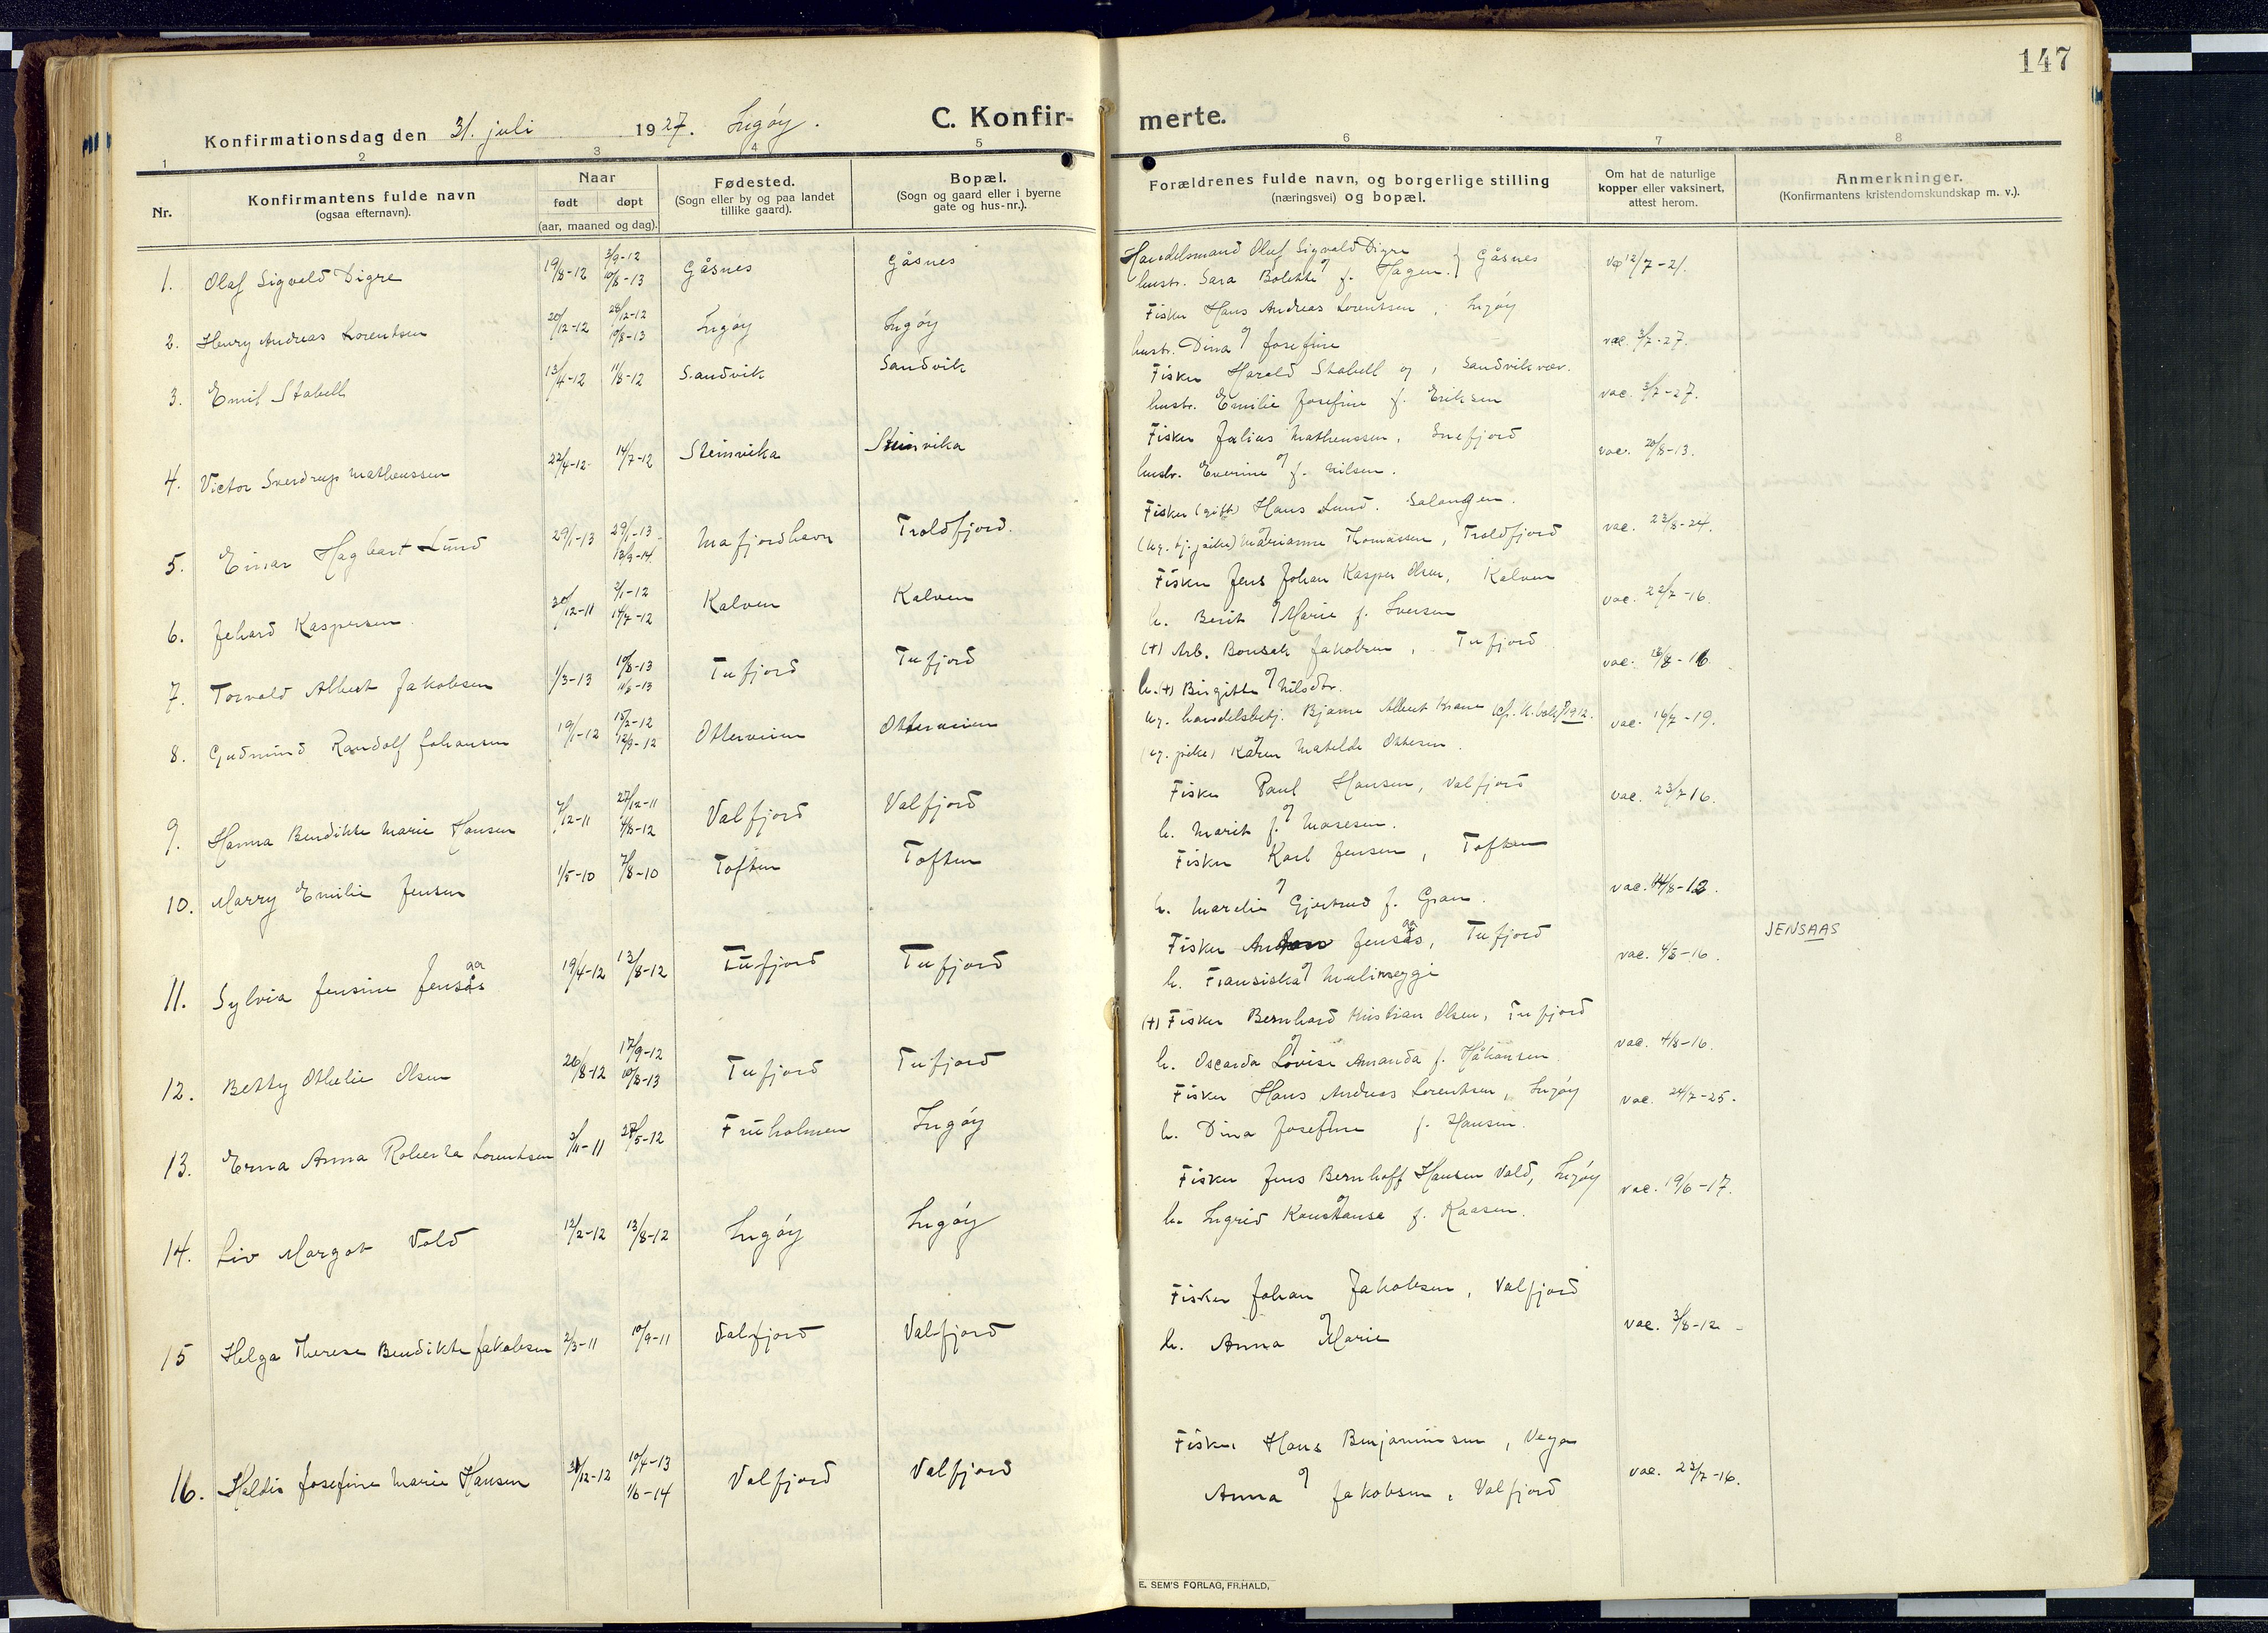 147
Konfirmationsdag den 31. juli 1927. Ingöy.
C. Konfir-
merte.
1 2 3 4 5 6 7 8
Nr.
Konfirmantens fulde navn
(ogsaa efternavn).
Naar
født døpt
(aar, maaned og dag).
Fødested.
(Sogn eller by og paa landet
tillike gaard).
Bopæl.
(Sogn og gaard eller i byerne
gate og hus-nr.).
Forældrenes fulde navn, og borgerlige stilling
(næringsvei) og bopæl.
Om hat de naturlige
kopper eller vaksinert,
attest herom.
Anmerkninger.
(Konfirmantens kristendomskundskap m. v.).
1. Olaf Sigvald Digre 19/8-12 3/9-12 10/8-13 Gåsnes Gåsnes
Handelsmand Oluf Sigvald Digre
og } Gåsnes
hustr. Sara Bolette f. Hagen.
12/7-21.
2. Henry Andreas Lorentsen 20/12-12 28/12-12 10/8-13 Ingöy Ingöy
Fisker Hans Andreas Lorentsen, Ingöy
hustr. Dina og Josefine
vac. 3/7-27.
3. Emil Stabell 13/4-12 11/8-12 Sandvik Sandvik
Fisker Harald Stabell og, Sandvikvær.
hustr. Emilie Josefine f. Eriksen
vac. 3/7-27.
4. Victor Sverdrup Matheussen 22/4-12 14/7-12 Steinvika Steinvika
Fisker Julius Matheussen, Snefjord
hustr. Everine og f. Nilsen.
vac. 20/8-13.
5. Einar Hagbart Lund 29/1-13 29/1-13 13/9-14 Mafjordhavn Troldfjord.
Fisker (gift) Hans Lund. Salangen.
(ug. tj. pike) Marianne Thomassen, Troldfjord
vac. 23/8-24.
6. Jehard Kaspersen. 30/12-11 2/1-12 14/7-12 Kalven Kalven
Fisker Jens Johan Kasper Olsen, Kalven
h. Berit og Marie f. Iversen
vac. 22/7-16.
7. Torvald Albert Jakobsen 1/3-13 10/8-13 Tufjord Tufjord
(+) Arb. Bonsak Jakobsen, Tufjord
h. (+) Birgitte og Nilsdtr.
vac. 16/8-16.
8. Gudmund Randolf Johansen 19/1-12 15/2-12 12/9-12 Otterveien Otterveien
ug. handelsbetj. Bjarne Albert Krane (cfr. K. bok 1912.
(ug. pike) Karen Matilde Ottesen.
vac. 16/7-19.
9. Hanna Bendikte Marie Hansen 7/12-11 27/12-11 4/8-12 Valfjord Valfjord
Fisker Paul Hansen, Valfjord
og
h. Marit f. Mosesen.
vac. 23/7 16.
10. Marry Emilie Jensen 1/5-10 7/8-10 Toften Toften
Fisker Karl Jensen, Toften
og
h. Marelie Gjertrud f. Gran.
vac. 14/8-12.
11. Sylvia Jensine Jensås aa 19/4-12 13/8-12 Tufjord Tufjord
Fisker Jensås, aa Tufjord
h. Fransiska og
vac. 4/8-16.
JENSAAS
12. Betty Othelie Olsen 26/8-12 17/9-12 10/8-13 Tufjord Tufjord
(+) Fisker Bernhard Kristian Olsen, Tufjord
og
h. Oscarda Lovise Amanda f. Håkonsen
vac. 4/8-16.
13. Erna Anna Roberta Lorentsen 3/11-11 27/5-12 Fruholmen Ingöy
Fisker Hans Andreas Lorentsen, Ingöy
og
h. Dina Josefine f. Hansen.
vac. 24/7-25.
14. Liv Margot Vold 12/2-12 13/8-12 Ingöy Ingöy
Fisker Jens Bernhoff Hansen Vold, Ingöy
og
h. Ingrid Konstanse f. Kaasen.
vac. 19/6-17.
15 Helga Therese Bendikte Jakobsen 2/3-11 10/9-11 Valfjord Valfjord
Fisker Johan Jakobsen, Valfjord
og
h. Anna Marie
vac. 3/8-12 -
16. Haldis Josefine Marie Hansen 31/12-12 10/4-13 1/6-14 Valfjord Valfjord
Fisker Hans Benjaminsen, Vega
og
Anna Jakobsen, Valfjord
vac. 23/7-16.
E. SEM'S FORLAG, FR.HALD.